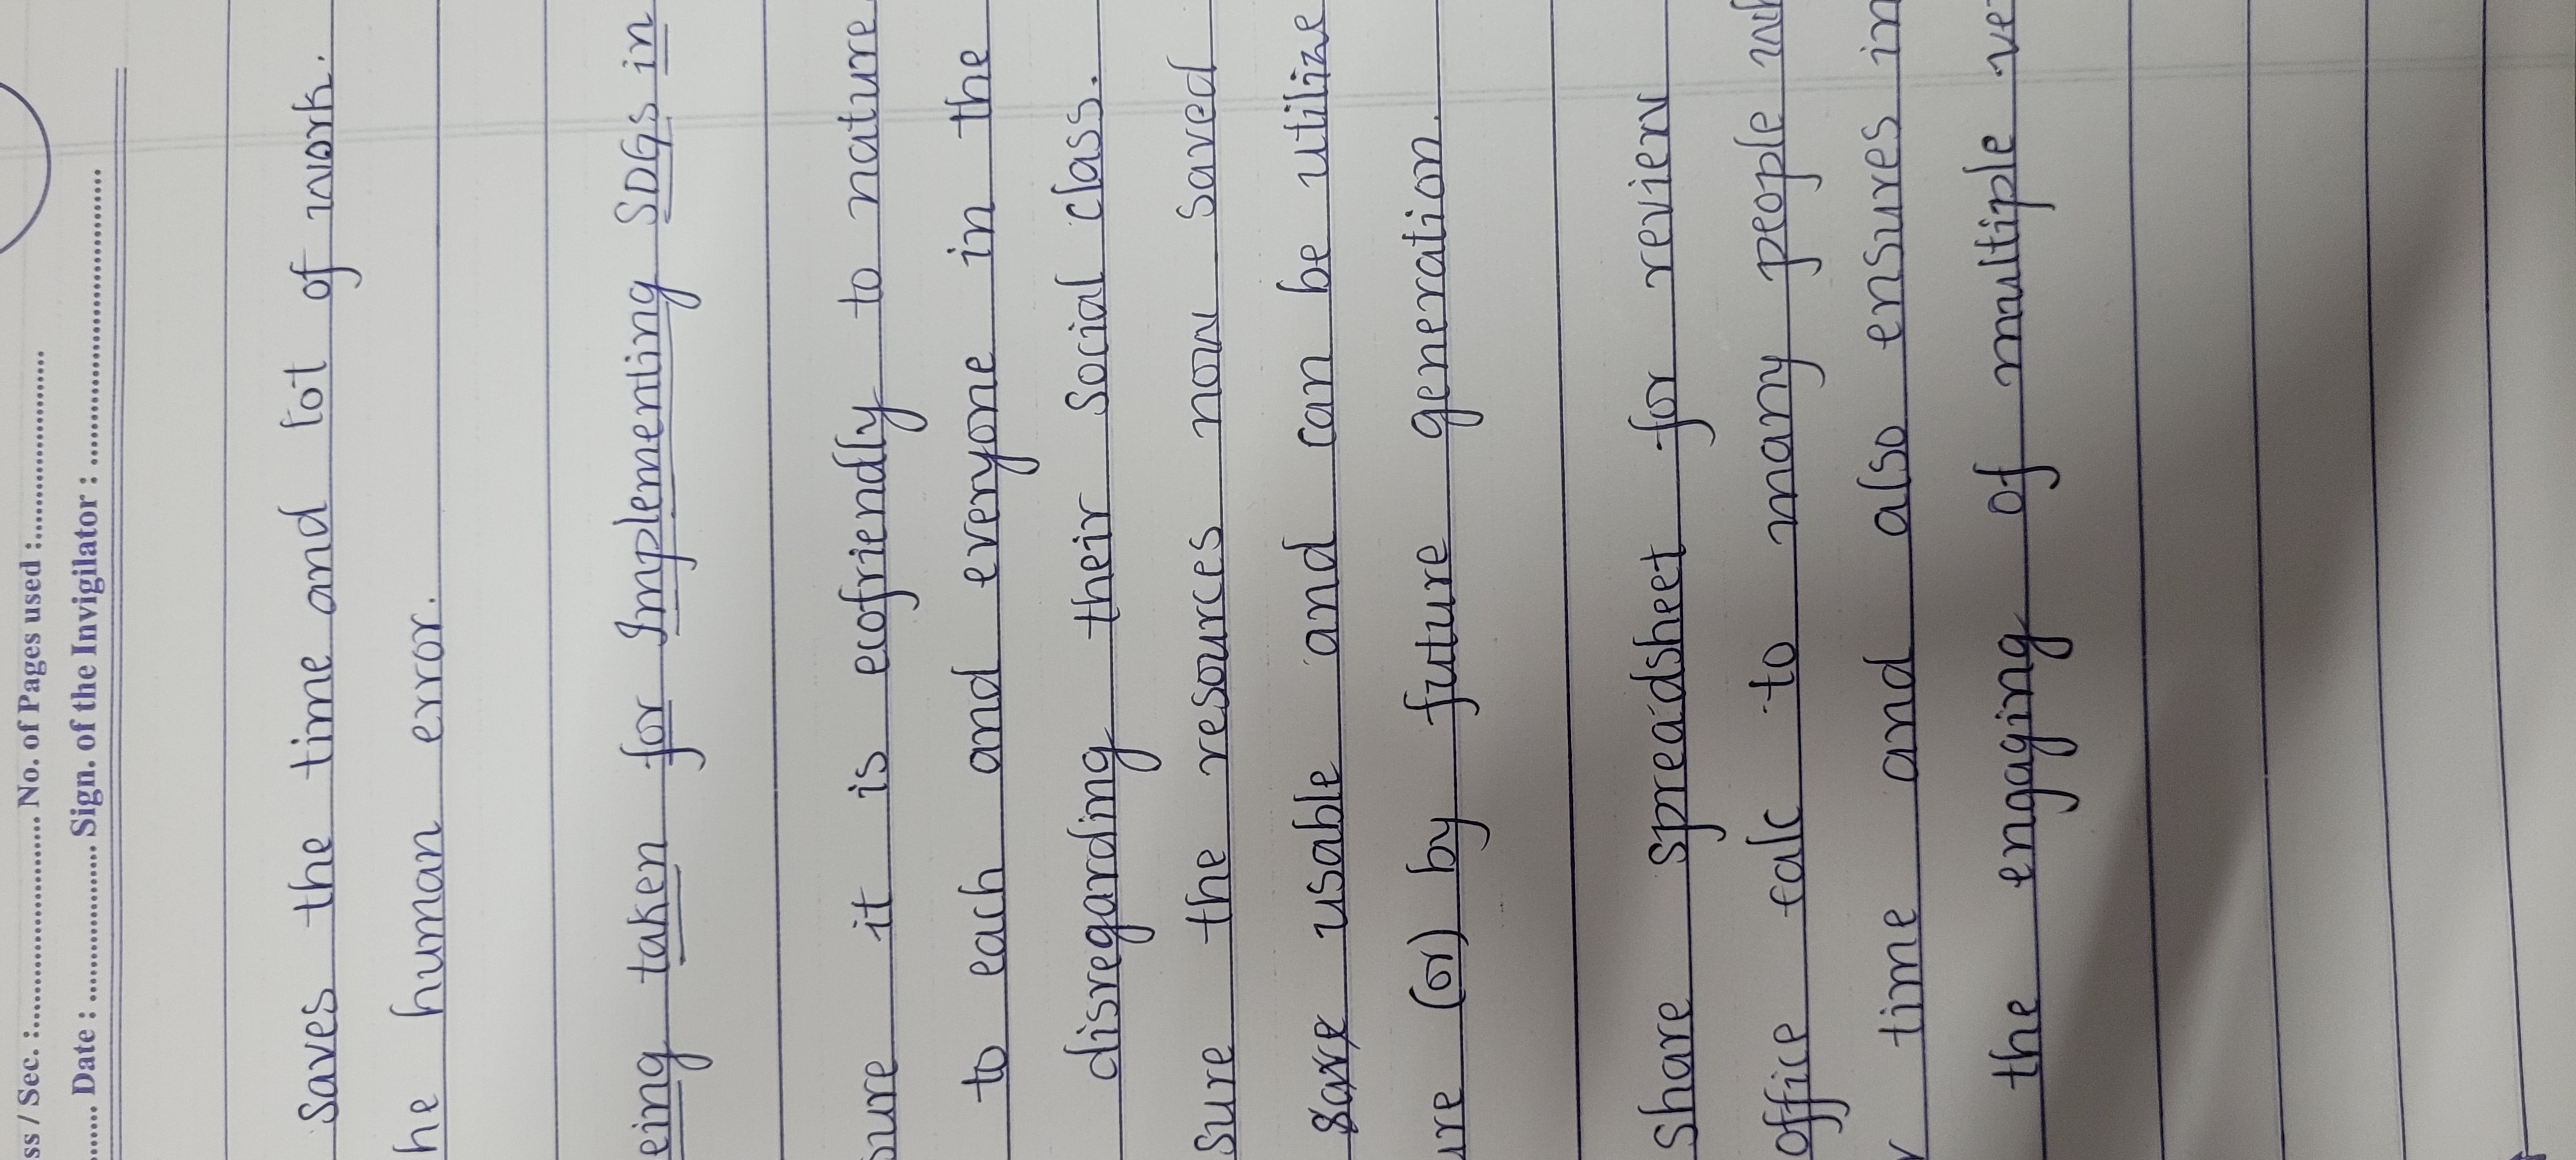 ss / Sec. : No. of Pages used :
Date : Sign. of the Invigilator :
saves the time and lot of work.
he human error.
eing taken for Implementing SDGs in
sure it is ecofriendly to nature
to each and everyone in the
disregarding their social class.
sure the resources now saved
usable and can be utilize
ure (or) by future generation.
share spreadsheet for review
office calc to many people
time and also ensures in
the engaging of multiple ve